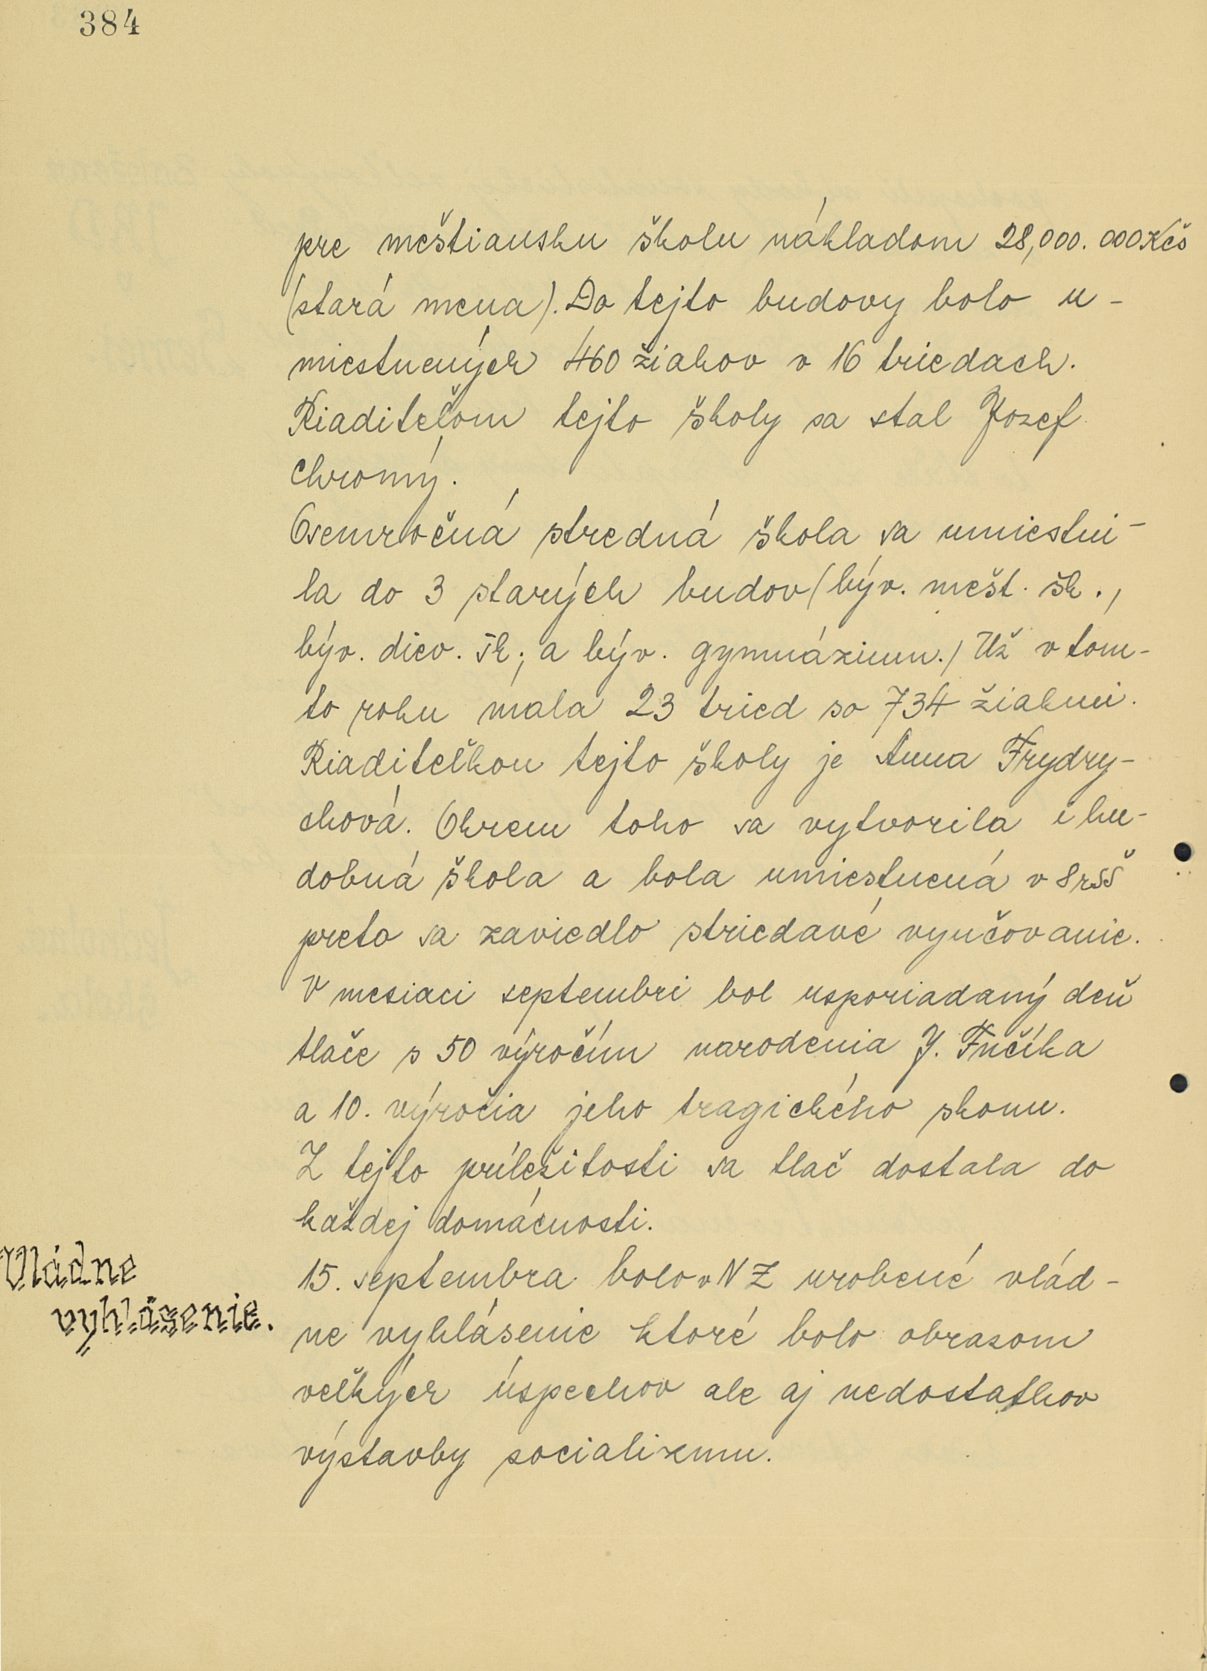 384
pre meštiansku školu nákladom 28,000.000 Kčs
(stará mena). Do tejto budovy bolo u-
miestnených 460 žiakov v 16 triedach.
Riaditeľom tejto školy sa stal Jozef
Chromý.
Osemročná stredná škola sa umiestni-
la do 3 starých budov (býv. mešt. šk.,
býv. diev. šk., a býv. gymnázium.) Už v tom-
to roku mala 23 tried so 734 žiakmi.
Riaditeľkou tejto školy je Anna Frydry-
chová. Okrem toho sa vytvorila i hu-
dobná škola a bola umiestnená v 8 rsš
preto sa zaviedlo striedavé vyučovanie.
V mesiaci septembri bol usporiadaný deň
tlače s 50 výročím narodenia J. Fučíka
a 10. výročia jeho tragického skonu.
Z tejto príležitosti sa tlač dostala do
každej domácnosti.
Vládne
vyhlásenie.
15. septembra bolo v NZ urobené vlád-
ne vyhlásenie ktoré bolo obrasom
veľkých úspechov ale aj nedostatkov
výstavby socializmu.